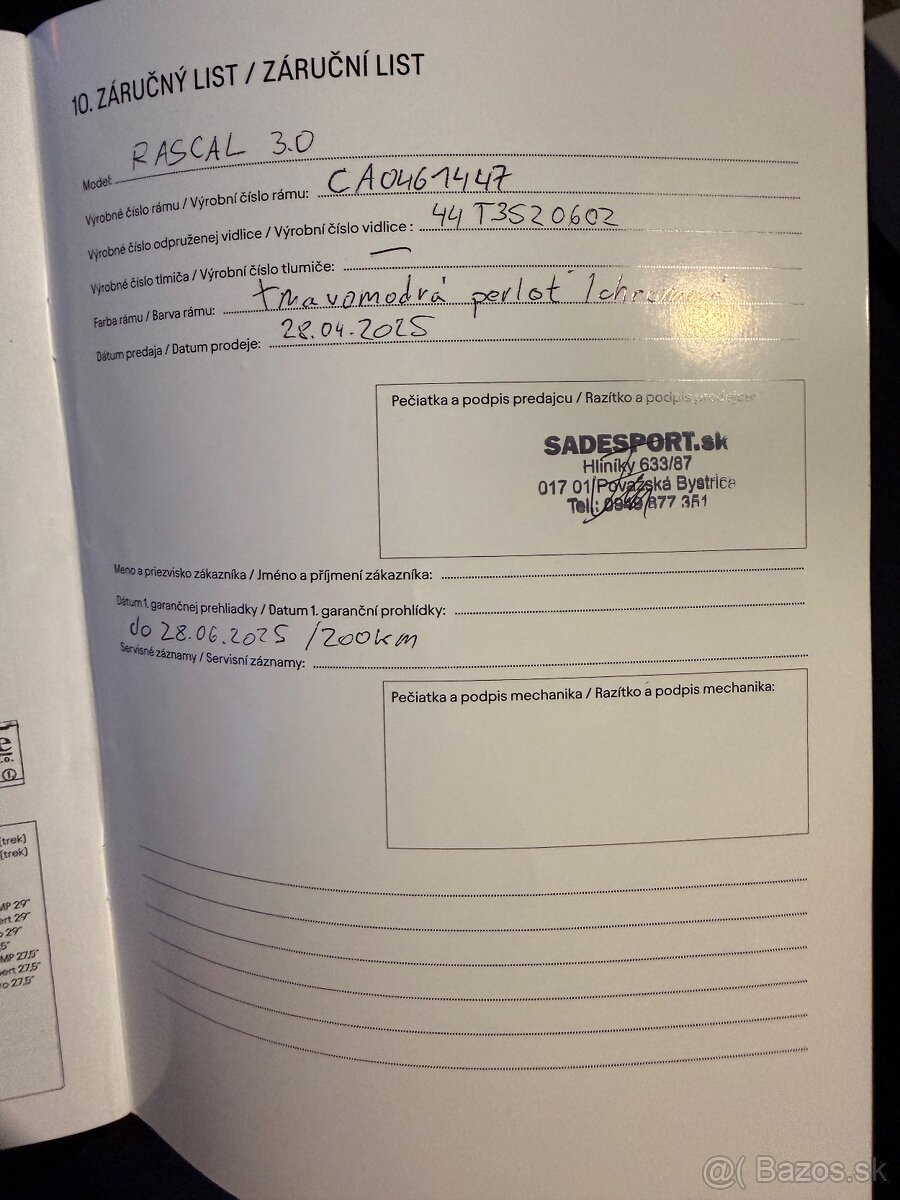 10. ZÁRUČNÝ LIST / ZÁRUČNÍ LIST
Model: RASCAL 3.0
Výrobné číslo rámu / Výrobní číslo rámu: CA0461447
Výrobné číslo odpruženej vidlice / Výrobní číslo vidlice: 44T3520602
Výrobné číslo tlmiča / Výrobní číslo tlumiče: —
Farba rámu / Barva rámu: tmavomodrá perloť /
Dátum predaja / Datum prodeje: 28.04.2025
Pečiatka a podpis predajcu / Razítko a podpis prodejce:
SADESPORT.sk
Hliníky 633/87
017 01 Považská Bystrica
Tel.: 0949 877 351
Meno a priezvisko zákazníka / Jméno a příjmení zákazníka:
Dátum 1. garančnej prehliadky / Datum 1. garanční prohlídky:
do 28.06.2025 /200km
Servisné záznamy / Servisní záznamy:
Pečiatka a podpis mechanika / Razítko a podpis mechanika:
[trek]
[trek]
MP 29"
ert 29"
o 29"
,5"
MP 27,5"
pert 27,5"
ro 27,5"
@( Bazos.sk